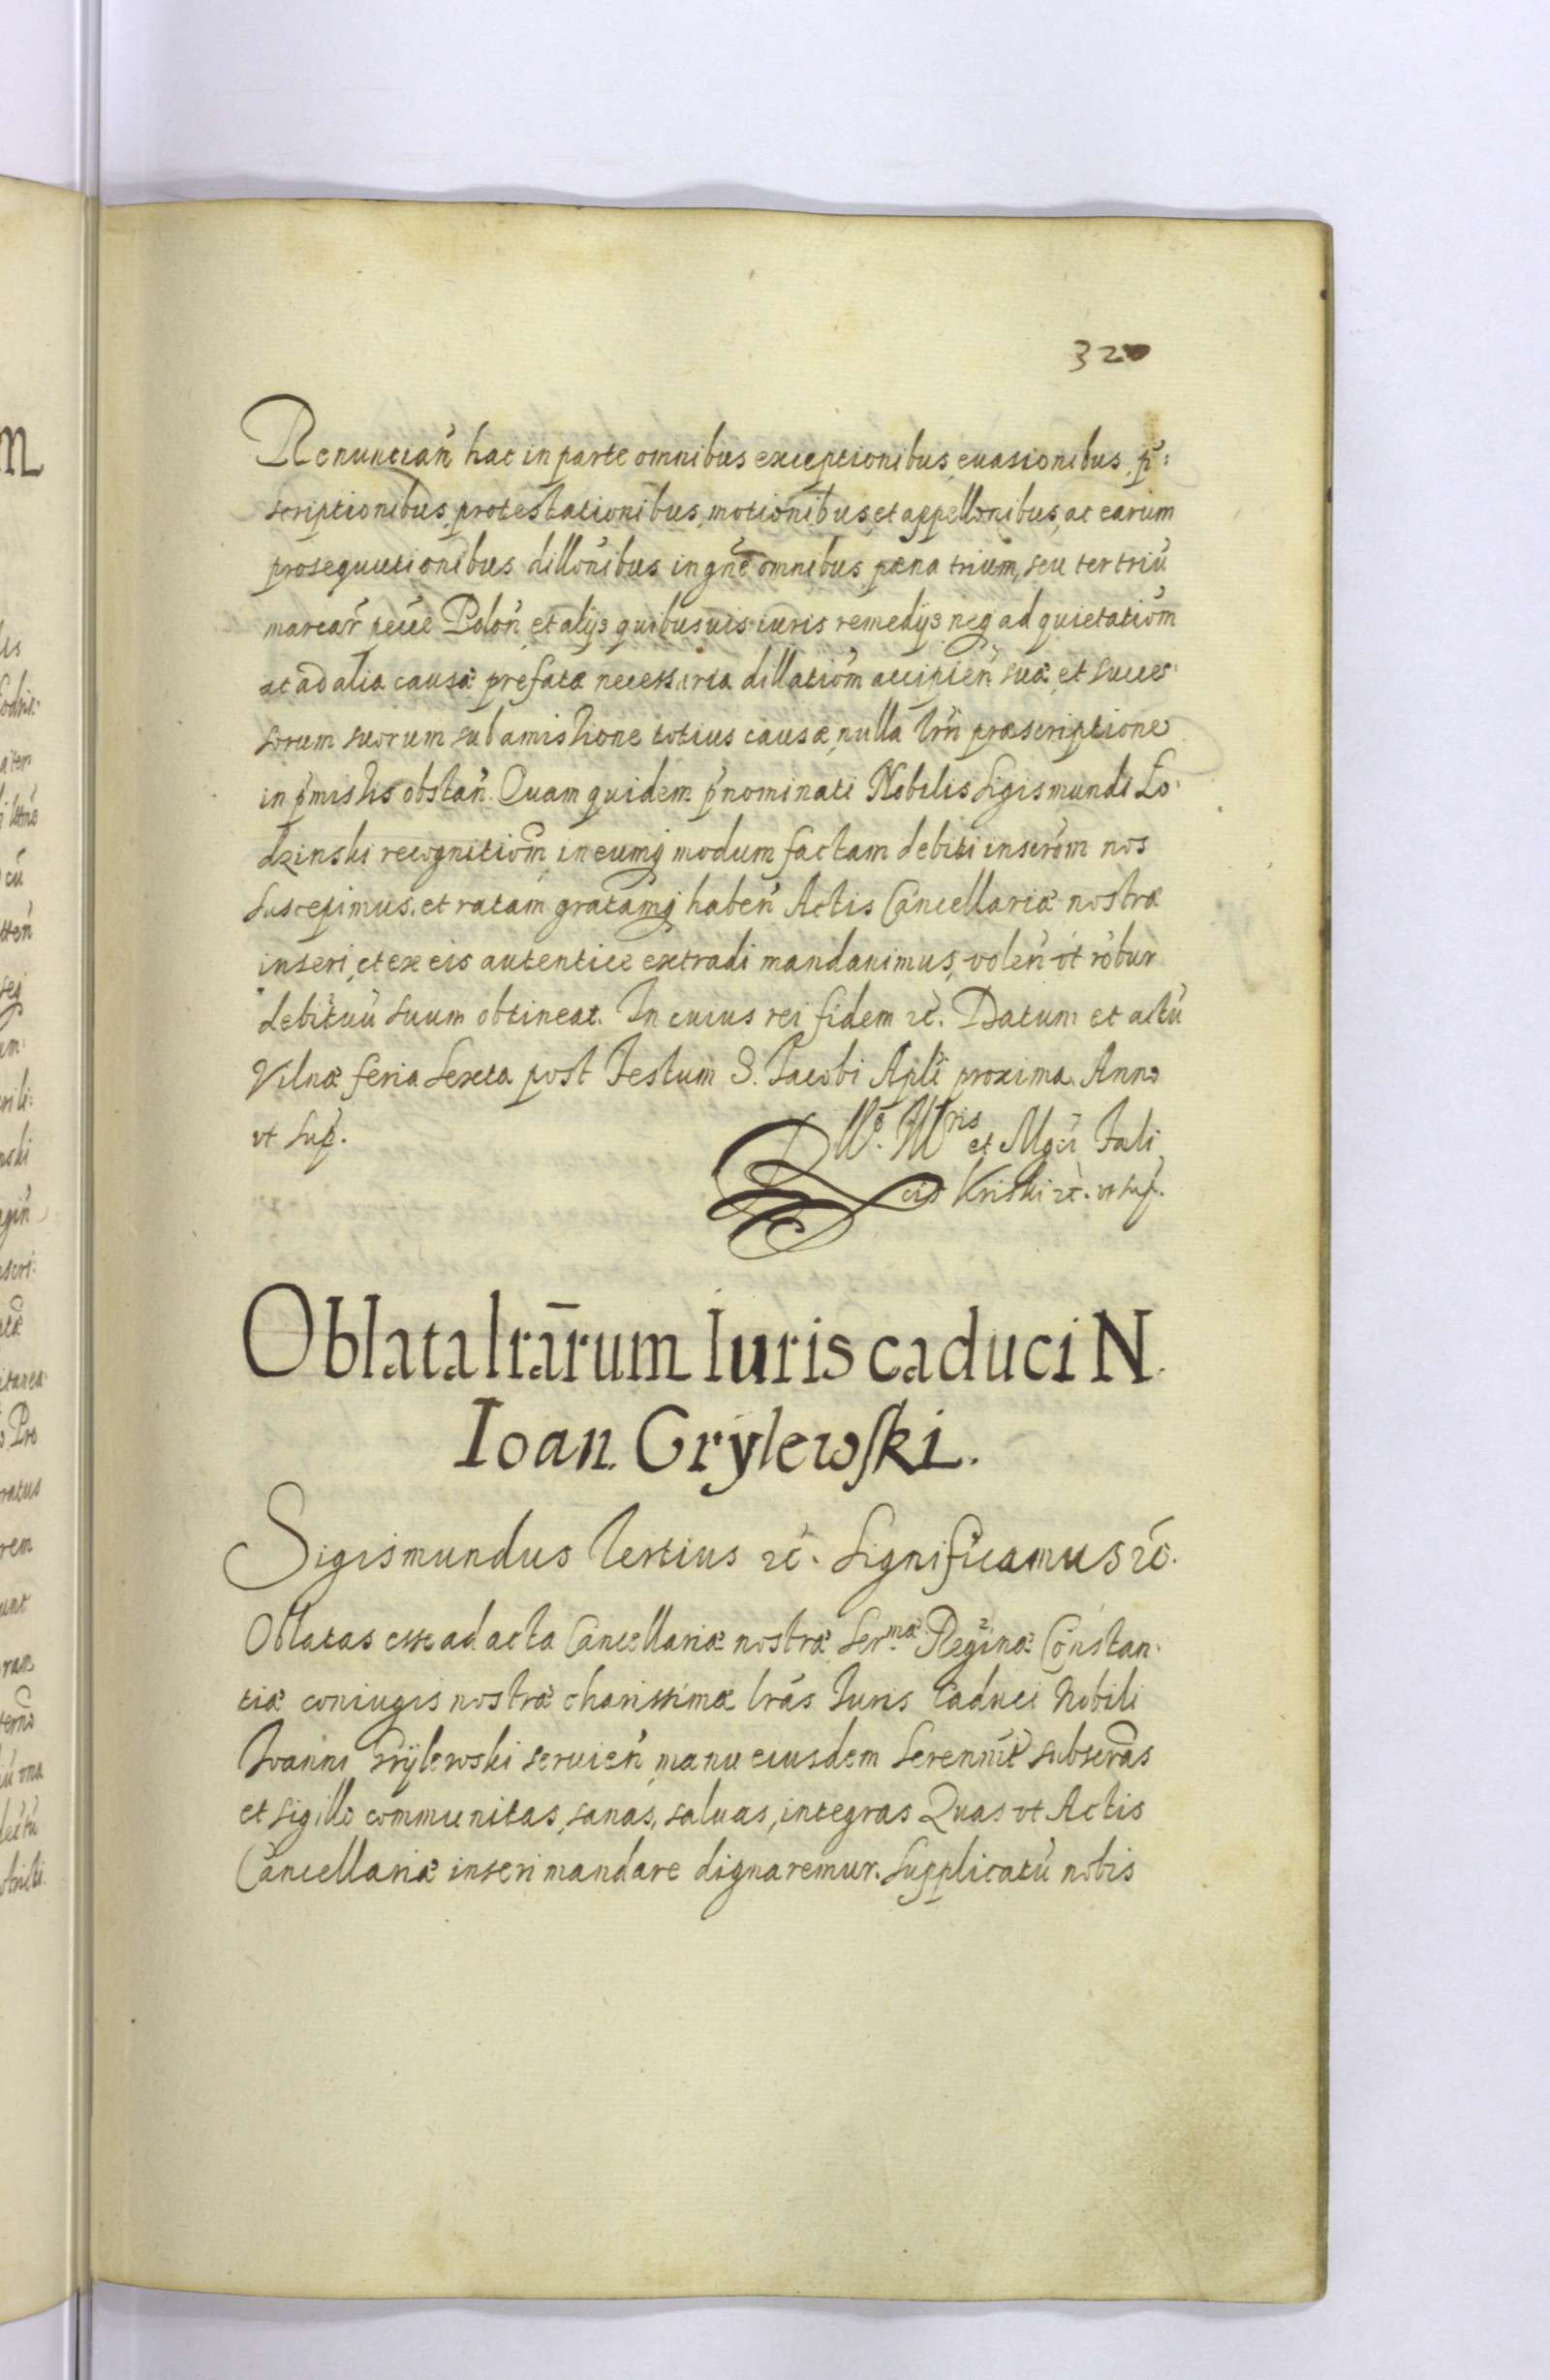 320
Renuncian̄ hac in parte omnibus exceptionibus, euasionibus, p̄:
scriptionibus, protestationibus, motionibus, et appellōnibus, ac earum
prosequutionibus dillōnibus in gn̄e omnibus, pæna trium, seu ter triū
marcar̄ pecūe Polon̄, et alijs quibusuis iuris remedijs neq ad quietatiōm
ac ad alia causæ prefatæ necessaria dillatiōm accipien̄, suæ et succes:
sorum suorum sub amissione totius causæ, nulla trr̄i præscriptione
in p̄missis obstan̄. Quam quidem p̄nominati Nobilis Sigismundi Lo:
dzinski recognitiōm in eumq modum factam debiti inscrōm nos
suscepimus, et ratam gratamq haben̄ Actis Cancellariæ nostræ
inseri, et ex eis autentice extradi mandauimus, volen̄ vt robur
debitūū suum obtineat. In cuius rei fidem ꝛc̄. Datum et actū
Vilnæ feria sexta post Festum S. Jacobi Apl̄i proxima Anno
vt sup.
Illris et Mgci Fæli
cis Kriski ꝛc̄. vt sup.
Oblata lrārum Iuris caduci N.
Ioan. Grÿlewski.
Sigismundus Tertius ꝛc̄. Significamus ꝛc̄.
Oblatas esse ad acta Cancellariæ nostræ Ser.mæ Reginæ Constan:
tiæ coniugis nostræ charissimæ lrās Iuris Caduci Nobili
Ioanni Grÿlewski seruien̄, manu eiusdem Serenn̄t subscrās
et sigillo communitas, sanas, saluas, integras Quas vt Actis
Cancellariæ inseri mandare dignaremur. Supplicatū nobis